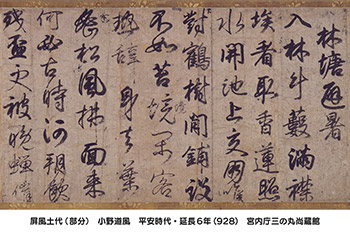 林塘避暑
入林斗藪満襟
埃看取香蓮照
水開池上交朋唯
對鶴樹間鋪設
不如苔客
身葉
松風拂面来
何必古時河朔飲
残盃更被晩蝉催
屏風土代（部分）　小野道風　平安時代・延長6年（928）　宮内庁三の丸尚蔵館